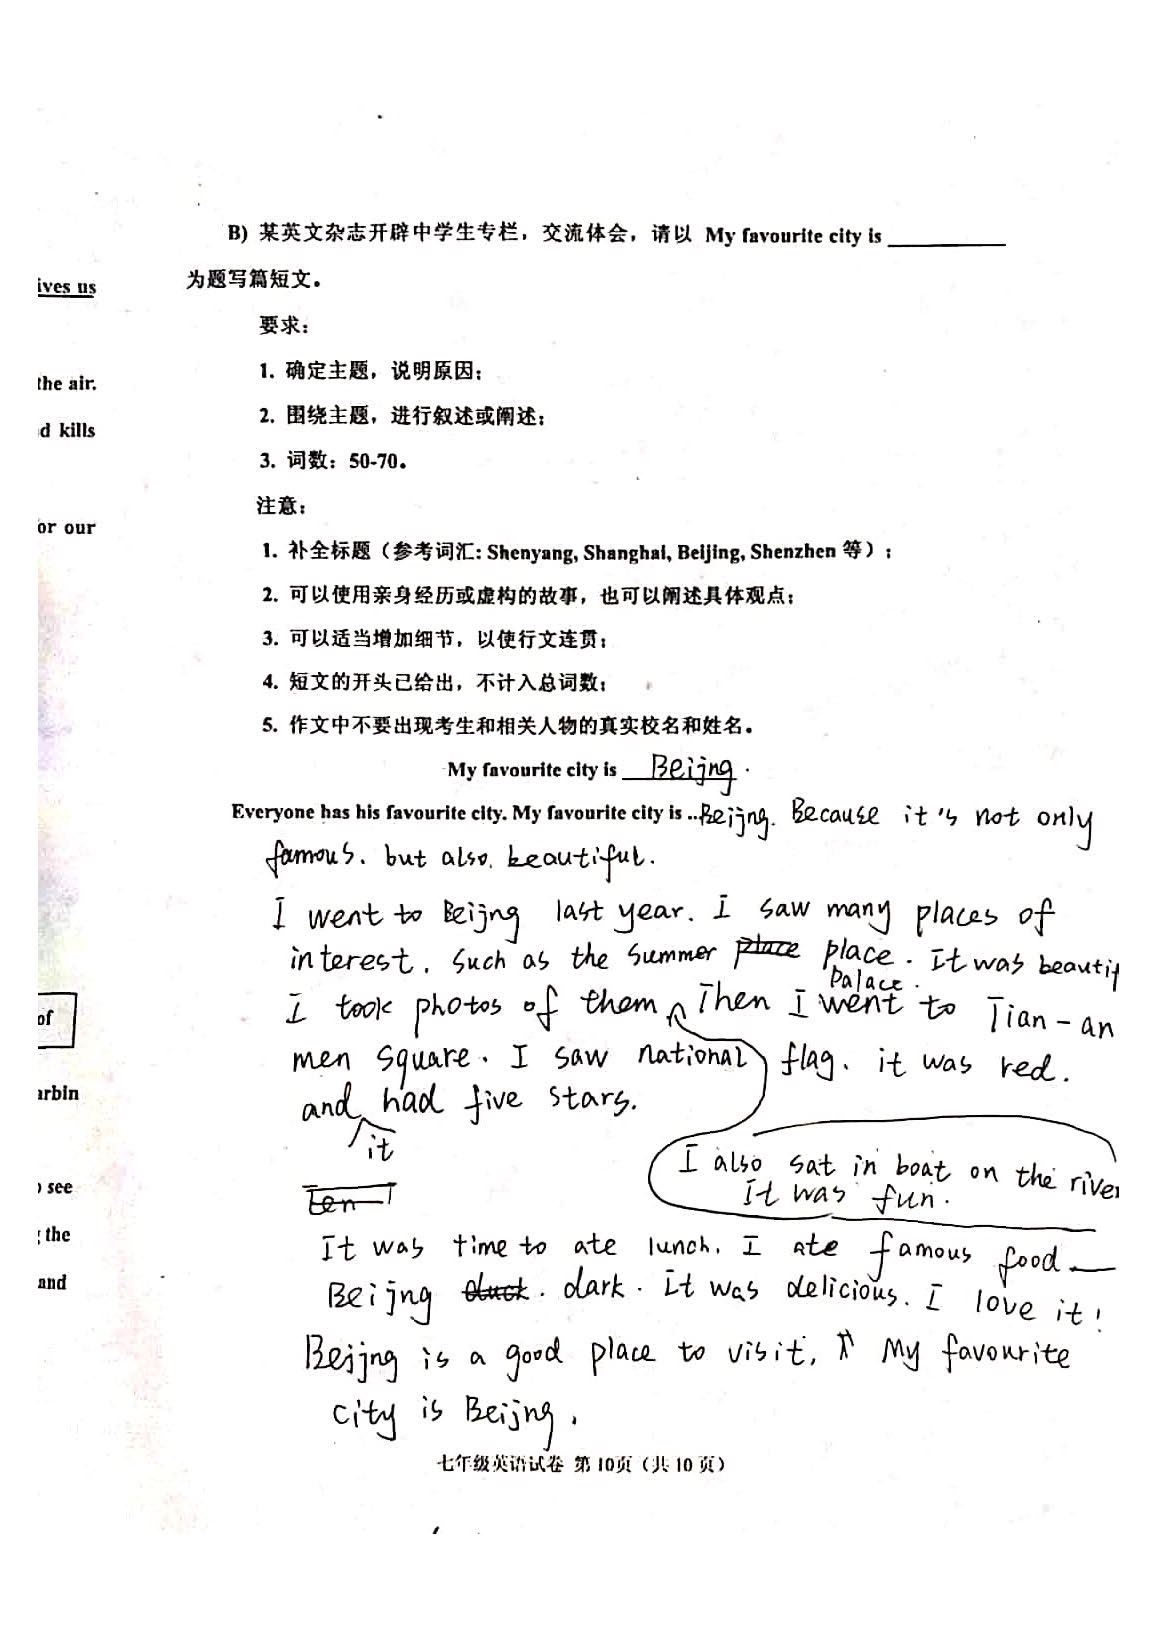 B) 某英文杂志开辟中学生专栏，交流体会，请以 My favourite city is ____________
为题写篇短文。
ives us
要求：
1. 确定主题，说明原因；
the air.
2. 围绕主题，进行叙述或阐述；
d kills
3. 词数：50-70。
注意：
or our
1. 补全标题（参考词汇: Shenyang, Shanghai, Beijing, Shenzhen 等）；
2. 可以使用亲身经历或虚构的故事，也可以阐述具体观点；
3. 可以适当增加细节，以使行文连贯；
4. 短文的开头已给出，不计入总词数；
5. 作文中不要出现考生和相关人物的真实校名和姓名。
My favourite city is Beijng.
Everyone has his favourite city. My favourite city is ..Beijng. Because it's not only
famous. but also. beautiful.
I went to Beijng last year. I saw many places of
interest. Such as the Summer place place. It was beautif
Palace.
I took photos of them Then I went to Tian-an
of
men Square. I saw national flag. it was red.
arbin
and had five stars.
it
I also sat in boat on the river
It was fun.
o see
Ten I
the
It was time to ate lunch. I ate famous food—
and
Beijng duck. dark. It was delicious. I love it!
Beijng is a good place to visit, My favourite
city is Beijng.
七年级英语试卷 第10页（共10页）